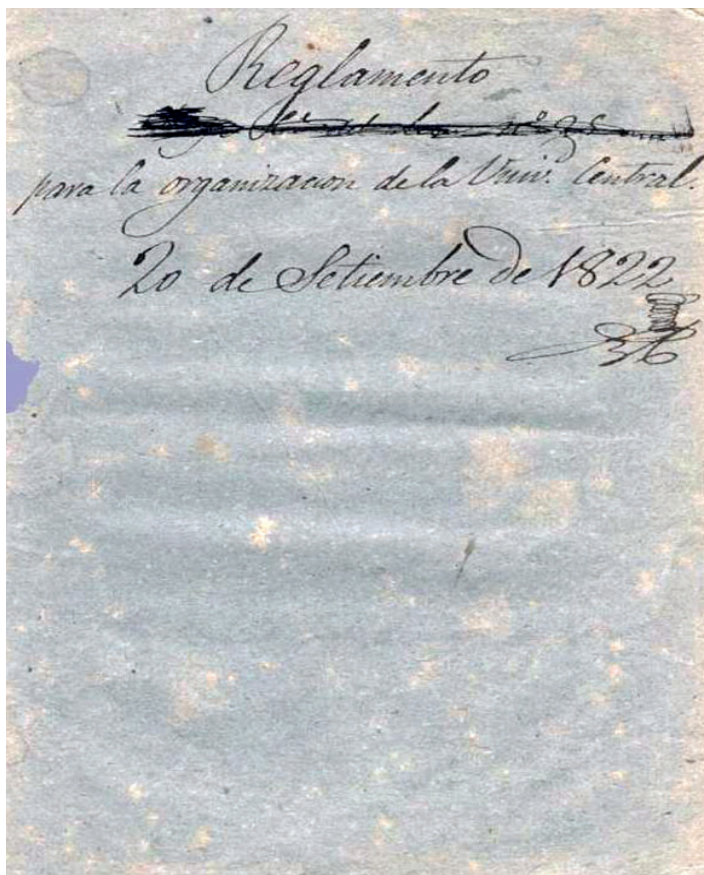 Reglamento
para la organizacion de la Univ.d Central.
20 de Setiembre de 1822